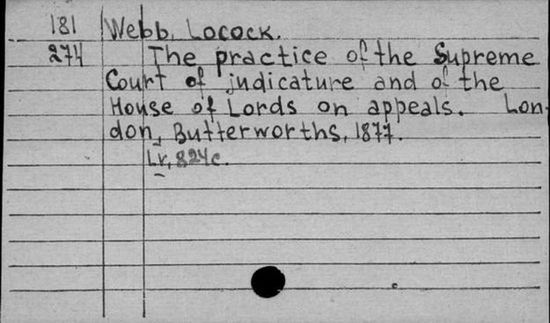 181 Webb, Locock.
274 The practice of the Supreme
Court of judicature and of the
House of Lords on appeals. Lon-
don, Butterworths, 1877.
Lr, 824c.